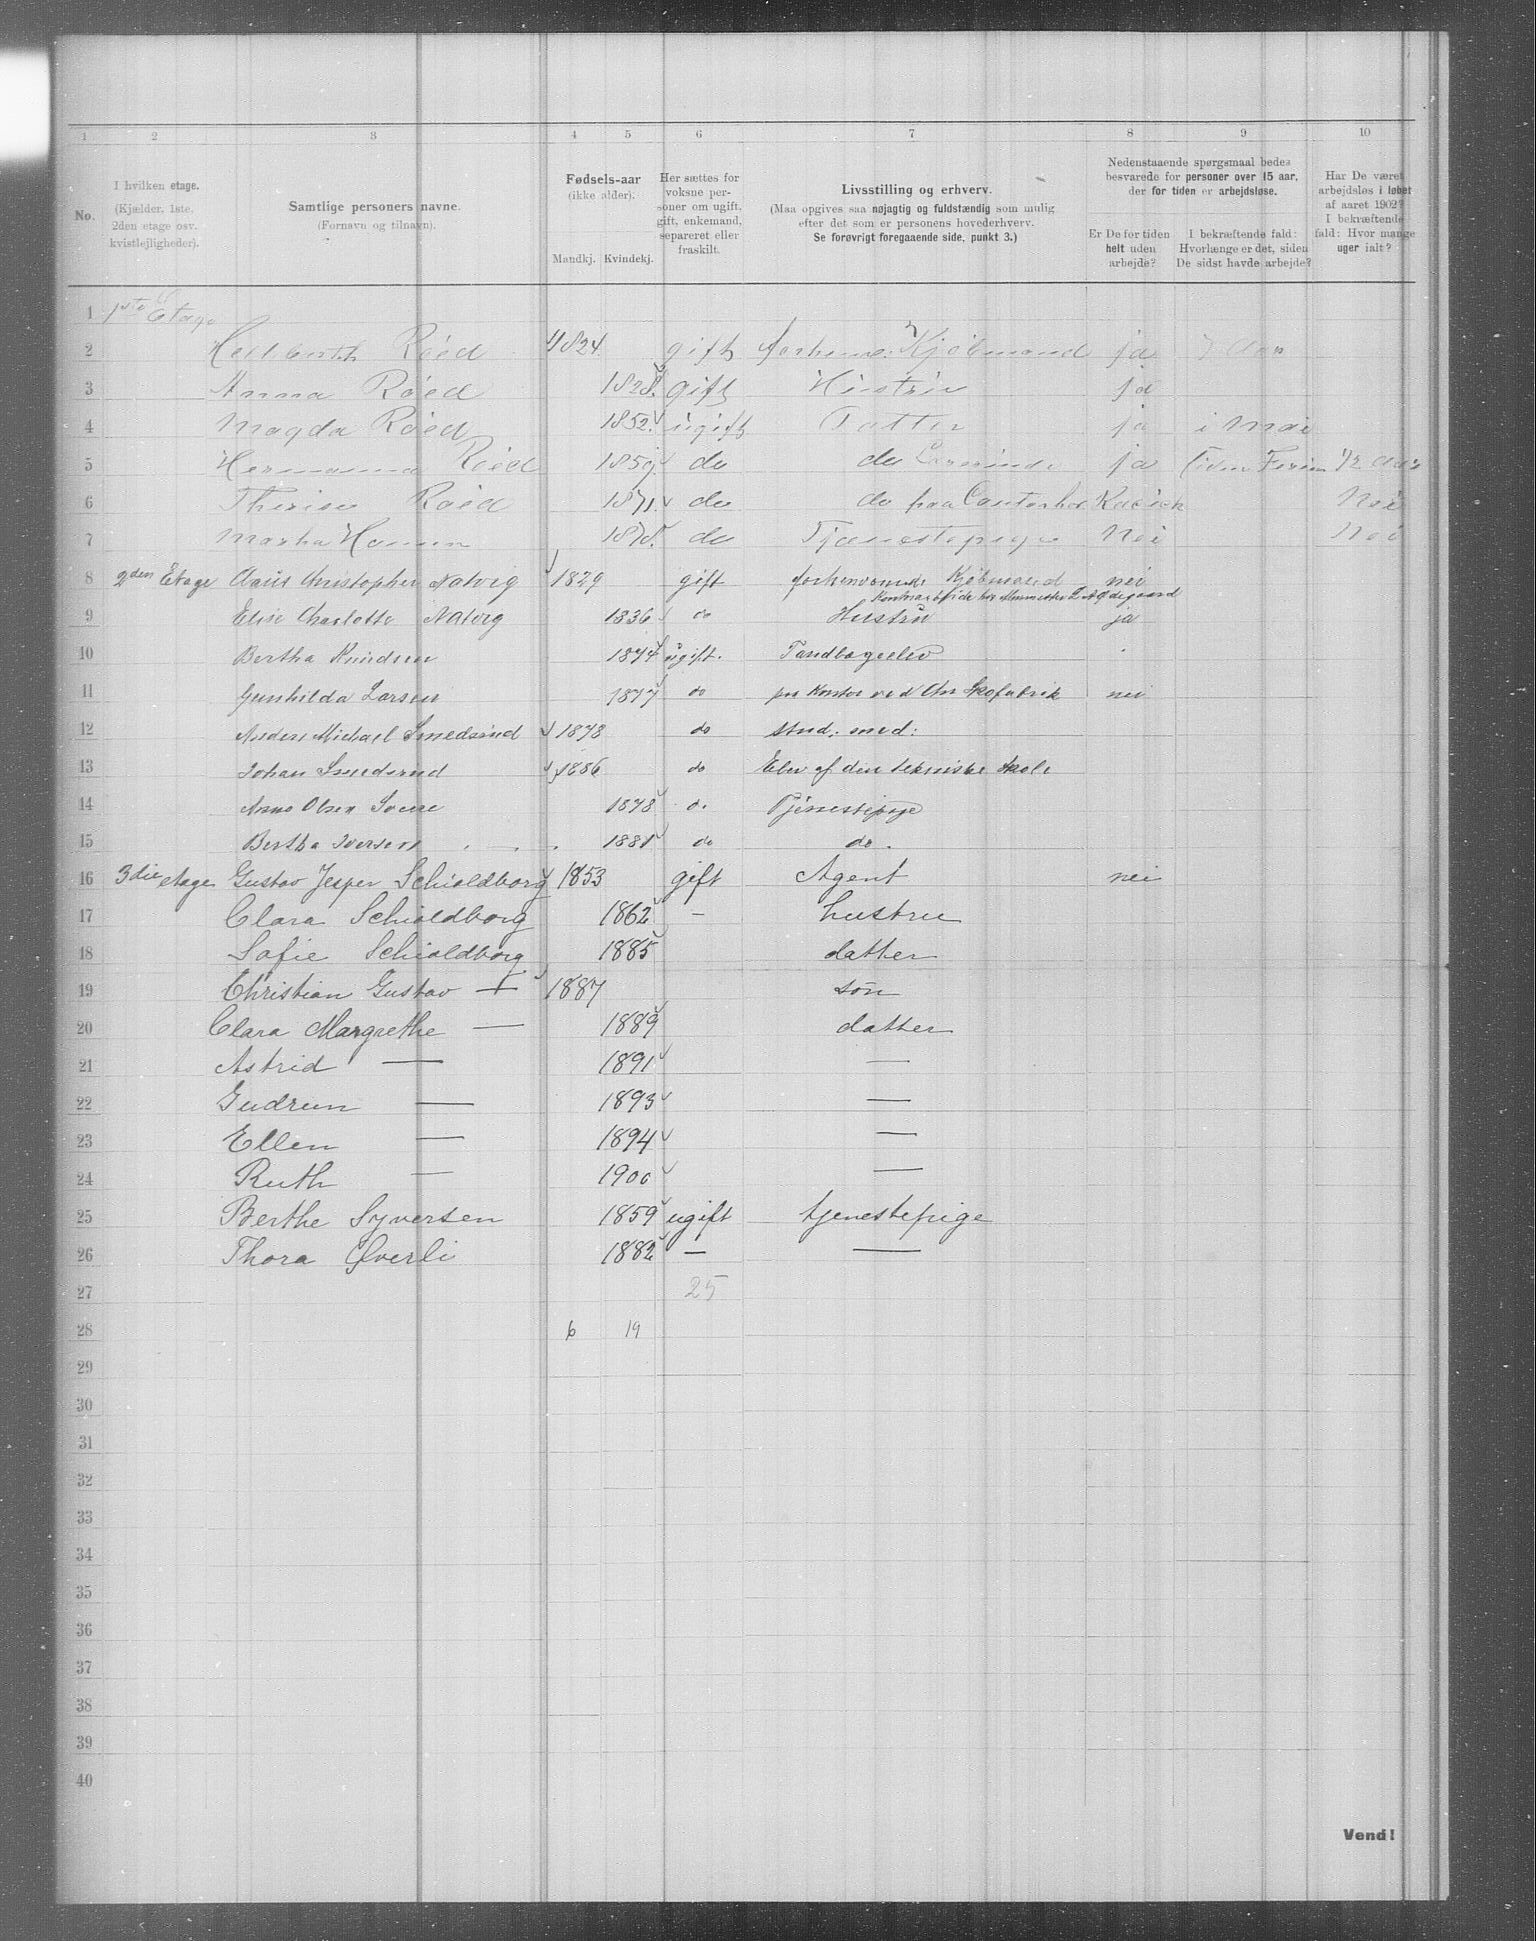 1 2 3 4 5 6 7 8 9 10
No.
I hvilken etage.
(Kjælder, 1ste.
2den etage osv.
kvistlejligheder).
Samtlige personers navne.
(Fornavn og tilnavn).
Fødsels-aar
(ikke alder).
Mandkj. Kvindekj.
Her sættes for
voksne per-
soner om ugift,
gift, enkemand,
separeret eller
fraskilt.
Livsstilling og erhverv.
(Maa opgives saa nøjagtig og fuldstændig som mulig
efter det som er personens hovederhverv.
Se forøvrigt foregaaende side, punkt 3.)
Nedenstaaende spørgsmaal bedes
besvarede for personer over 15 aar,
der for tiden er arbejdsløse.
Er De for tiden
helt uden
arbejde?
I bekræftende fald:
Hvorlænge er det, siden
De sidst havde arbejde?
Har De været
arbejdsløs i løbet
af aaret 1902?
I bekræftende
fald: Hvor mange
uger ialt?
1 1ste Etage
2 Røed 1824 gift Kjøbmand ja 7 Aar
3 Anna Røed 1828 gift Hustru ja
4 Magda Røed 1852 ugift Datter ja i Mai
5 Hermanna Røed 1859 do do Lærerinde ja
6 Røed 1871 do do paa Nei
7 Martha Hansen 1878 do Tjenestepige Nei Nei
8 2den Etage Christopher Natvig 1829 gift forhenværende Kjøbmand nei
9 Elise Charlotte Natvig 1836 do Hustru ja
10 Bertha Knudsen 1874 ugift. Tandlægeelev
11 Gunhilda Larsen 1877 do paa Kontor ved Skofabrik nei
12 Anders Michael Smedsrud 1878 do stud. med:
13 Johan Smedsrud 1886 do Elev af den tekniske Skole
14 Anne Olsen 1878 do Tjenestepige
15 Bertha Iversen 1881 do do.
16 3die etage Gustav Jesper Schioldborg 1853 gift Agent nei
17 Clara Schioldborg 1862 — hustru
18 Sofie Schioldborg 1885 datter
19 Christian Gustav — 1887 søn
20 Clara Margrethe — 1889 datter
21 Astrid — 1891 —
22 Gudrun — 1893 —
23 Ellen — 1894 —
24 Ruth — 1900 —
25 Berthe Syversen 1859 ugift tjenestepige
26 Thora Øverli 1882 — —
27 25
28 6 19
29
30
31
32
33
34
35
36
37
38
39
40
Vend!